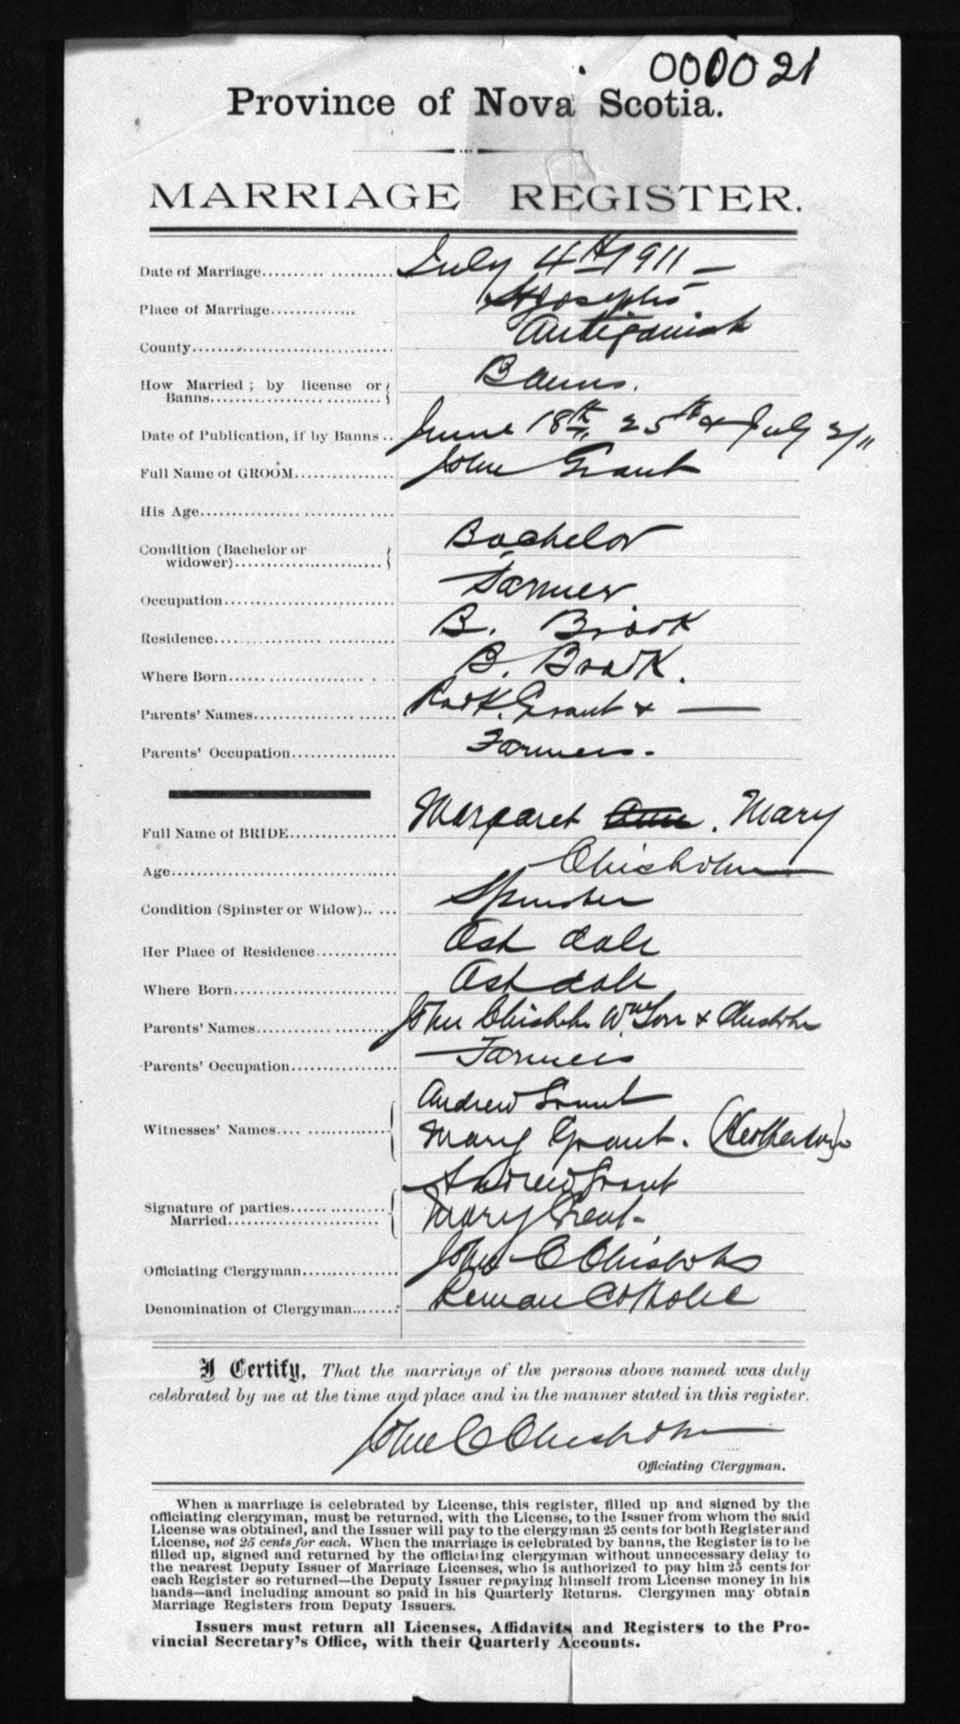 000021
Province of Nova Scotia.
MARRIAGE REGISTER.
Date of Marriage.................... July 4th 1911 —
Place of Marriage.............. St Josephs
County.............................. Antigonish
How Married ; by license or Banns........................ Banns.
Date of Publication, if by Banns .. June 18th, 25th & July 2/11
Full Name of GROOM............... John Grant
His Age.............................
Condition (Bachelor or widower)...................... Bachelor
Occupation.......................... Farmer
Residence........................... B. Brook
Where Born.......................... B. Brook.
Parents' Names..................... Grant & —
Parents' Occupation............... Farmers.
Full Name of BRIDE................ Margaret Ann. Mary
Age................................. Chisholm
Condition (Spinster or Widow)...... Spinster
Her Place of Residence............. Ashdale
Where Born.......................... Ashdale
Parents' Names..................... John Chisholm & Chisholm
Parents' Occupation................ Farmers
Witnesses' Names.... .............. Andrew Grant
Mary Grant.
Signature of parties Married........................ Andrew Grant
Mary Grant
Officiating Clergyman............... John C Chisholm
Denomination of Clergyman........ Roman Catholic
I Certify, That the marriage of the persons above named was duly
celebrated by me at the time and place and in the manner stated in this register.
John C Chisholm
Officiating Clergyman.
When a marriage is celebrated by License, this register, filled up and signed by the
officiating clergyman, must be returned, with the License, to the Issuer from whom the said
License was obtained, and the Issuer will pay to the clergyman 25 cents for both Register and
License, not 25 cents for each. When the marriage is celebrated by banns, the Register is to be
filled up, signed and returned by the officiating clergyman without unnecessary delay to
the nearest Deputy Issuer of Marriage Licenses, who is authorized to pay him 25 cents for
each Register so returned—the Deputy Issuer repaying himself from License money in his
hands—and including amount so paid in his Quarterly Returns. Clergymen may obtain
Marriage Registers from Deputy Issuers.
Issuers must return all Licenses, Affidavits and Registers to the Pro-
vincial Secretary's Office, with their Quarterly Accounts.